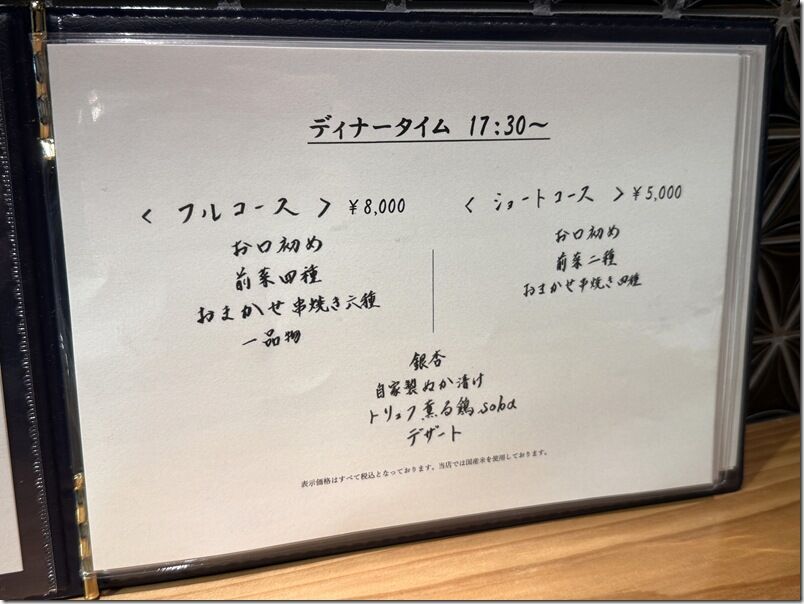 ディナータイム 17:30～
〈 フルコース 〉 ¥8,000
お口初め
前菜四種
おまかせ串焼き六種
一品物
〈 ショートコース 〉 ¥5,000
お口初め
前菜二種
おまかせ串焼き四種
銀杏
自家製ぬか漬け
トリュフ薫る鶏soba
デザート
表示価格はすべて税込となっております。当店では国産米を使用しております。